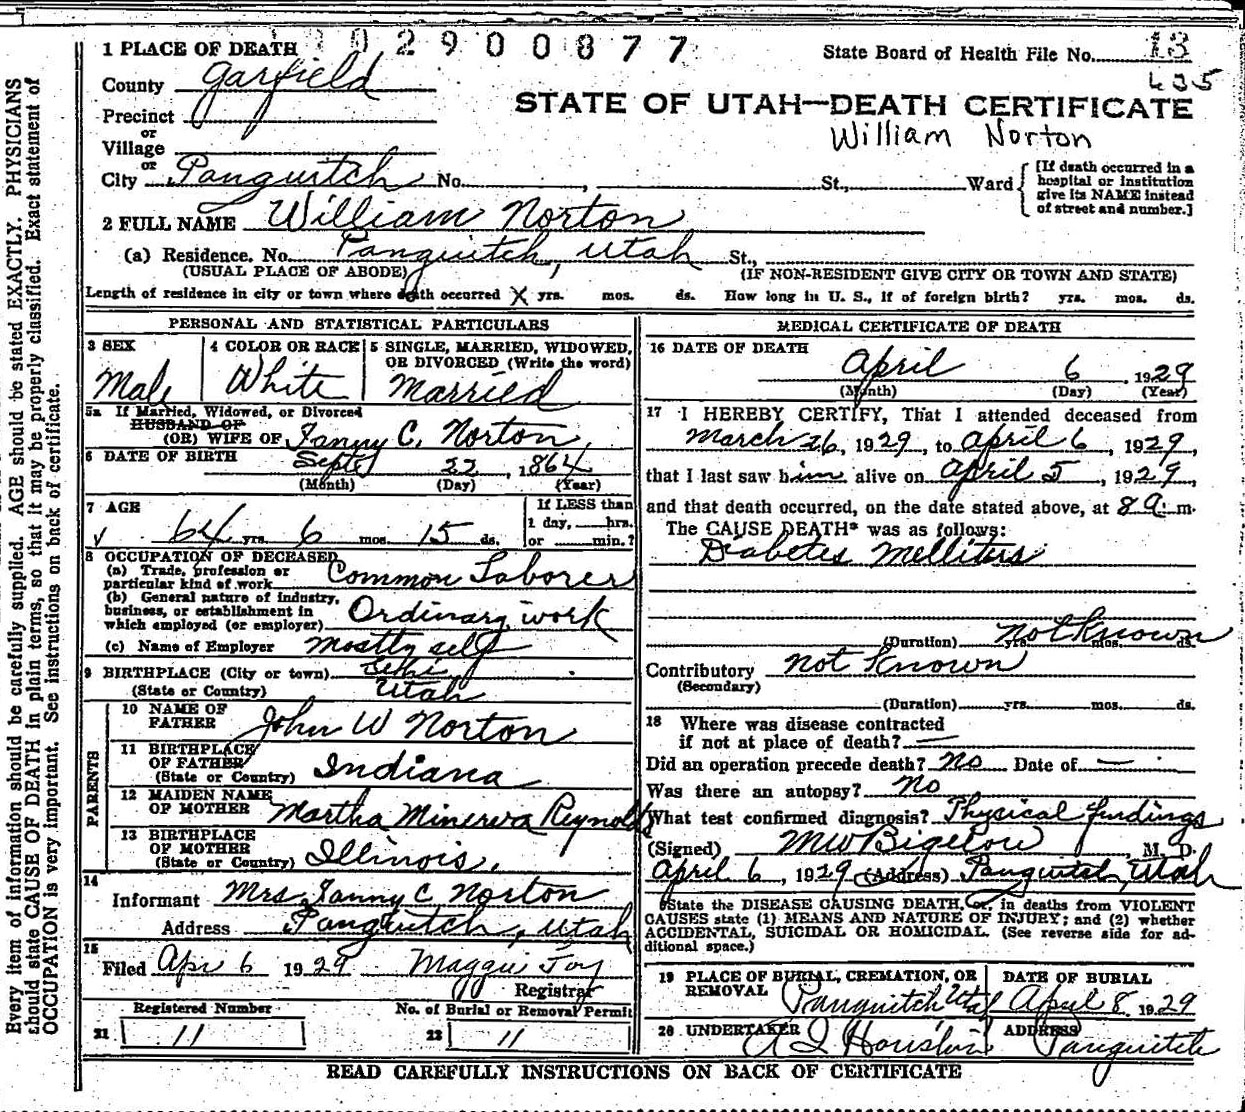 0 2 9 0 0 8 7 7
1 PLACE OF DEATH
State Board of Health File No. 13
435
County Garfield
STATE OF UTAH—DEATH CERTIFICATE
Precinct
William Norton
or
Village
or
City Panguitch No. , St., Ward
[If death occurred in a
hospital or institution
give its NAME instead
of street and number.]
2 FULL NAME William Norton
(a) Residence. No. Panguitch, Utah St.,
(USUAL PLACE OF ABODE) (IF NON-RESIDENT GIVE CITY OR TOWN AND STATE)
Length of residence in city or town where death occurred X yrs. mos. ds. How long in U. S., if of foreign birth? yrs. mos. ds.
PERSONAL AND STATISTICAL PARTICULARS
3 SEX
Male
4 COLOR OR RACE
White
5 SINGLE, MARRIED, WIDOWED,
OR DIVORCED (Write the word)
Married
5a If Married, Widowed, or Divorced
HUSBAND OF
(OR) WIFE OF Fanny C. Norton,
6 DATE OF BIRTH Sept 22, 1864
(Month) (Day) (Year)
7 AGE
64 yrs. 6 mos. 15 ds.
If LESS than
1 day, hrs.
or min.?
8 OCCUPATION OF DECEASED
(a) Trade, profession or
particular kind of work Common Laborer
(b) General nature of industry,
business, or establishment in
which employed (or employer) Ordinary work
(c) Name of Employer mostly self
9 BIRTHPLACE (City or town) Lehi
(State or Country) Utah
PARENTS
10 NAME OF
FATHER John W Norton
11 BIRTHPLACE
OF FATHER
(State or Country) Indiana
12 MAIDEN NAME
OF MOTHER Martha Minerva Reynolds
13 BIRTHPLACE
OF MOTHER
(State or Country) Illinois.
14
Informant Mrs. Fanny C Norton
Address Panguitch, Utah
15
Filed Apr 6 1929 Maggie Foy
Registrar
Registered Number
21 11
No. of Burial or Removal Permit
22 11
MEDICAL CERTIFICATE OF DEATH
16 DATE OF DEATH
April 6, 1929
(Month) (Day) (Year)
17 I HEREBY CERTIFY, That I attended deceased from
March 26, 1929, to April 6, 1929,
that I last saw him alive on April 5, 1929,
and that death occurred, on the date stated above, at 8 a. m.
The CAUSE DEATH* was as follows:
Diabetes Mellitus
(Duration) not known yrs. mos. ds.
Contributory not known
(Secondary)
(Duration) yrs. mos. ds.
18 Where was disease contracted
if not at place of death? —
Did an operation precede death? No Date of —
Was there an autopsy? No
What test confirmed diagnosis? Physical findings
(Signed) M W Bigelow, M. D.
April 6, 1929 (Address) Panguitch, Utah
*State the DISEASE CAUSING DEATH, or, in deaths from VIOLENT
CAUSES state (1) MEANS AND NATURE OF INJURY; and (2) whether
ACCIDENTAL, SUICIDAL OR HOMICIDAL. (See reverse side for ad-
ditional space.)
19 PLACE OF BURIAL, CREMATION, OR
REMOVAL Panguitch Utah
DATE OF BURIAL
April 8 1929
20 UNDERTAKER
ADDRESS
Panguitch
READ CAREFULLY INSTRUCTIONS ON BACK OF CERTIFICATE
Every item of information should be carefully supplied. AGE should be stated EXACTLY. PHYSICIANS
should state CAUSE OF DEATH in plain terms, so that it may be properly classified. Exact statement of
OCCUPATION is very important. See instructions on back of certificate.